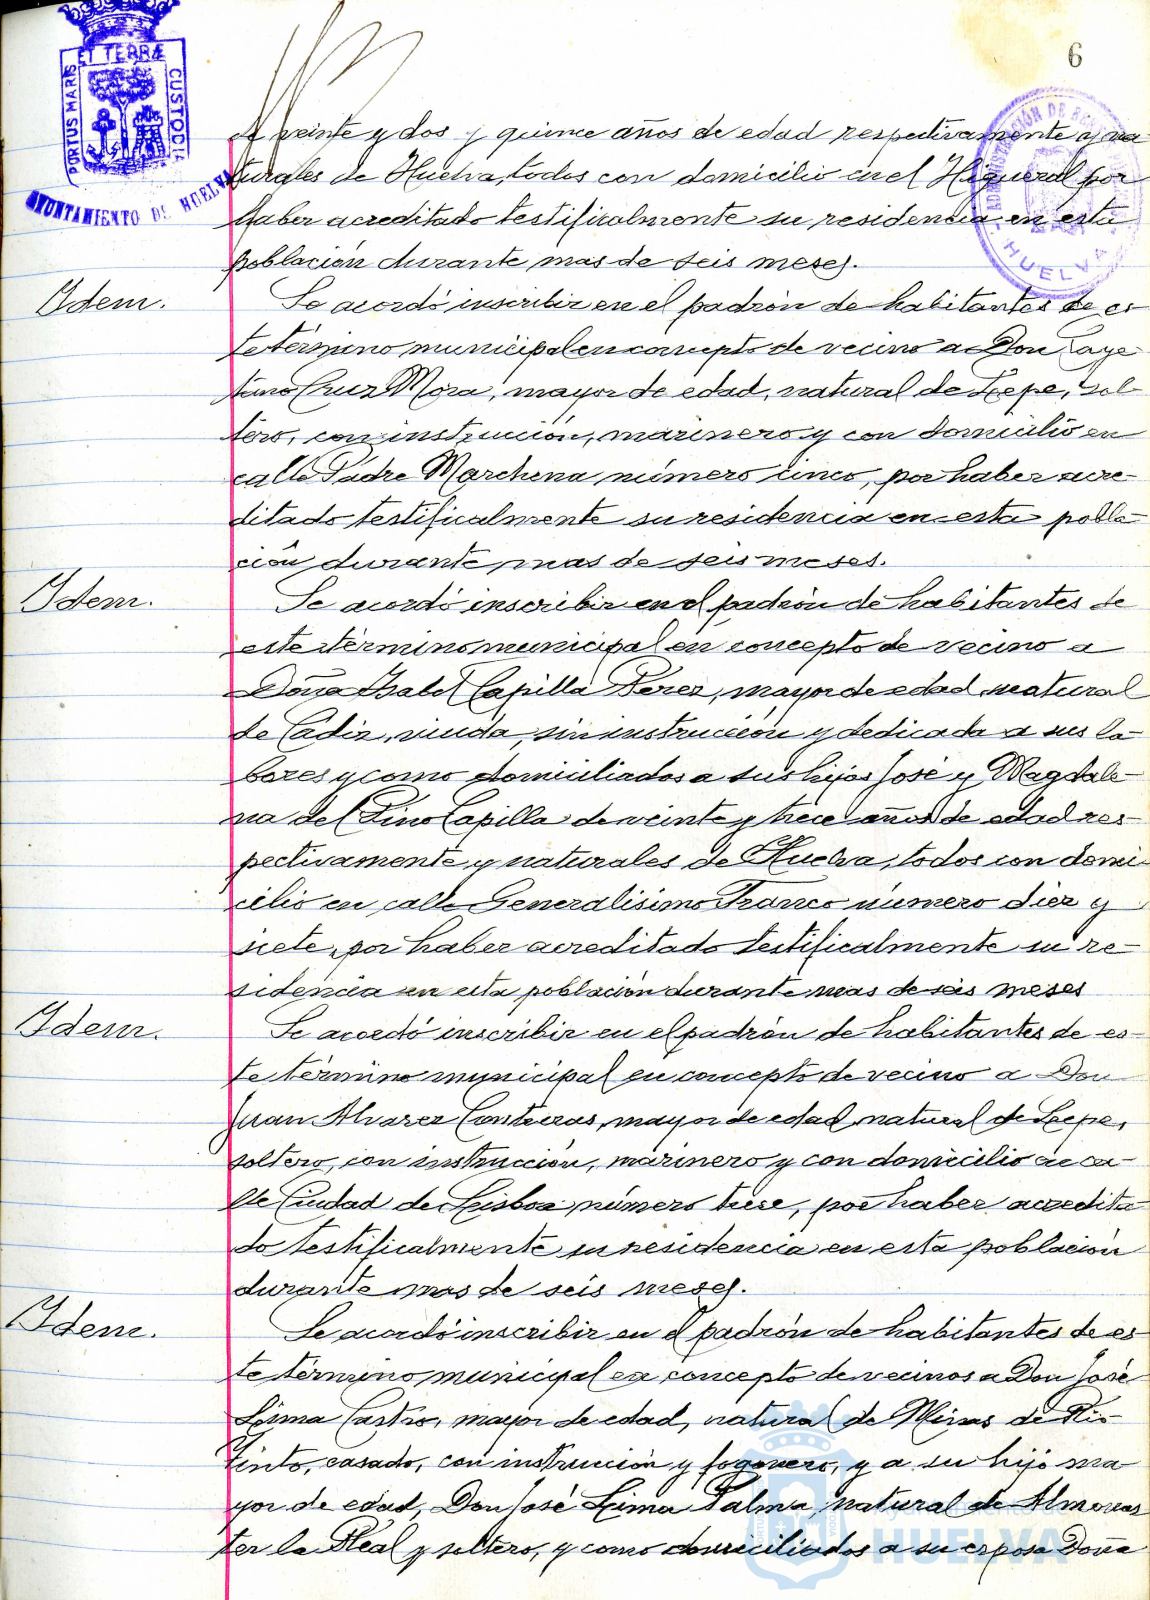 6
PORTUS MARIS ET TERRÆ CUSTODIA
AYUNTAMIENTO DE HUELVA
HUELVA
de veinte y dos y quince años de edad respectivamente y na
turales de Huelva, todos con domicilio en el Higueral por
haber acreditado testificalmente su residencia en esta
población durante mas de seis meses.
Idem.
Se acordó inscribir en el padrón de habitantes de es
te término municipal en concepto de vecino a Don Caye
tano Cruz Mora, mayor de edad, natural de Lepe, sol-
tero, con instrucción, marinero y con domicilio en
calle Padre Marchena número cinco, por haber acre-
ditado testificalmente su residencia en esta pobla-
ción durante mas de seis meses.
Idem.
Se acordó inscribir en el padrón de habitantes de
este término municipal en concepto de vecino a
Doña Isabel Capilla Perez, mayor de edad, natural
de Cádiz, viuda, sin instrucción y dedicada a sus la-
bores y como domiciliados a sus hijos José y Magdale-
na del Pino Capilla de veinte y trece años de edad res-
pectivamente y naturales de Huelva, todos con domi-
cilio en calle Generalisimo Franco número diez y
siete, por haber acreditado testificalmente su re-
sidencia en esta población durante mas de seis meses
Idem.
Se acordó inscribir en el padrón de habitantes de es-
te término municipal en concepto de vecino a Don
Juan Alvarez Contreras, mayor de edad, natural de Lepe,
soltero, con instrucción, marinero y con domicilio en ca-
lle Ciudad de Lisboa número trece, por haber acredita
do testificalmente su residencia en esta población
durante mas de seis meses.
Idem.
Se acordó inscribir en el padrón de habitantes de es
te término municipal en concepto de vecinos a Don José
Lima Castro, mayor de edad, natural de Minas de Rio-
tinto, casado, con instrucción y fogonero, y a su hijo ma
yor de edad, Don José Lima Palma, natural de Almonas
ter la Real y soltero, y como domiciliados a su esposa Doña
Ayuntamiento de
HUELVA